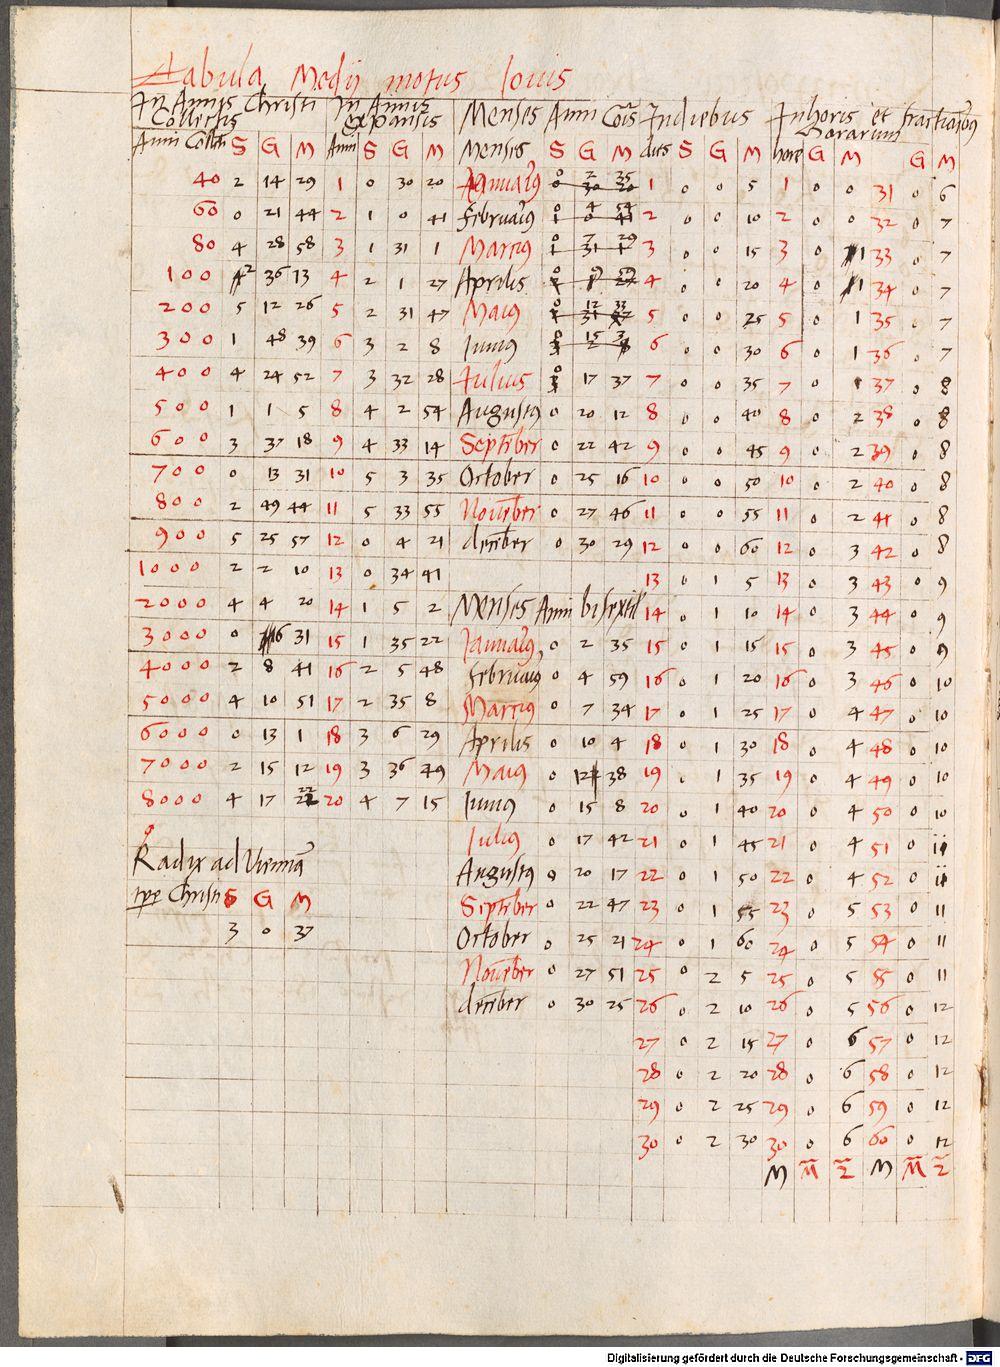 Tabula Medij motus Iouis
In Annis Christi In Annis Menses Anni Cois In diebus In horis et fractionibus
Collectis expansis horarum
Anni Collecti S G M Anni S G M Menses S G M dies S G M hore G M G M
40 2 14 29 1 0 30 20 Januarius 0 2 35 1 0 0 5 1 0 0 31 0 6
60 0 21 44 2 1 0 41 februarius 0 4 54 2 0 0 10 2 0 0 32 0 7
80 4 28 58 3 1 31 1 Martius 0 7 29 3 0 0 15 3 0 1 33 0 7
100 2 36 13 4 2 1 27 Aprilis 0 4 0 0 20 4 0 1 34 0 7
200 5 12 26 5 2 31 47 Maius 0 12 33 5 0 0 25 5 0 1 35 0 7
300 1 48 39 6 3 2 8 Junius 0 15 3 6 0 0 30 6 0 1 36 0 7
400 4 24 52 7 3 32 28 Julius 0 17 37 7 0 0 35 7 0 1 37 0 8
500 1 1 5 8 4 2 54 Augustus 0 20 12 8 0 0 40 8 0 2 38 0 8
600 3 37 18 9 4 33 14 Septēber 0 22 42 9 0 0 45 9 0 2 39 0 8
700 0 13 31 10 5 3 35 October 0 25 16 10 0 0 50 10 0 2 40 0 8
800 2 49 44 11 5 33 55 Nouēber 0 27 46 11 0 0 55 11 0 2 41 0 8
900 5 25 57 12 0 4 21 decēber 0 30 29 12 0 0 60 12 0 3 42 0 8
1000 2 2 10 13 0 34 41 13 0 1 5 13 0 3 43 0 9
2000 4 4 20 14 1 5 2 Menses Anni bisextil 14 0 1 10 14 0 3 44 0 9
3000 0 6 31 15 1 35 22 Januarius 0 2 35 15 0 1 15 15 0 3 45 0 9
4000 2 8 41 16 2 5 48 februarius 0 4 59 16 0 1 20 16 0 3 46 0 10
5000 4 10 51 17 2 35 8 Martius 0 7 34 17 0 1 25 17 0 4 47 0 10
6000 0 13 1 18 3 6 29 Aprilis 0 10 4 18 0 1 30 18 0 4 48 0 10
7000 2 15 12 19 3 36 49 Maius 0 12 38 19 0 1 35 19 0 4 49 0 10
8000 4 17 22 20 4 7 15 Junius 0 15 8 20 0 1 40 20 0 4 50 0 10
Julius 0 17 42 21 0 1 45 21 0 4 51 0 11
Radix ad Viennā Augustus 0 20 17 22 0 1 50 22 0 4 52 0 11
tpe Christi S G M Septēber 0 22 47 23 0 1 55 23 0 5 53 0 11
3 0 37 October 0 25 21 24 0 1 60 24 0 5 54 0 11
Nouēber 0 27 51 25 0 2 5 25 0 5 55 0 11
decēber 0 30 25 26 0 2 10 26 0 5 56 0 12
27 0 2 15 27 0 6 57 0 12
28 0 2 20 28 0 6 58 0 12
29 0 2 25 29 0 6 59 0 12
30 0 2 30 30 0 6 60 0 12
M M 2 M M 2
Digitalisierung gefördert durch die Deutsche Forschungsgemeinschaft - DFG